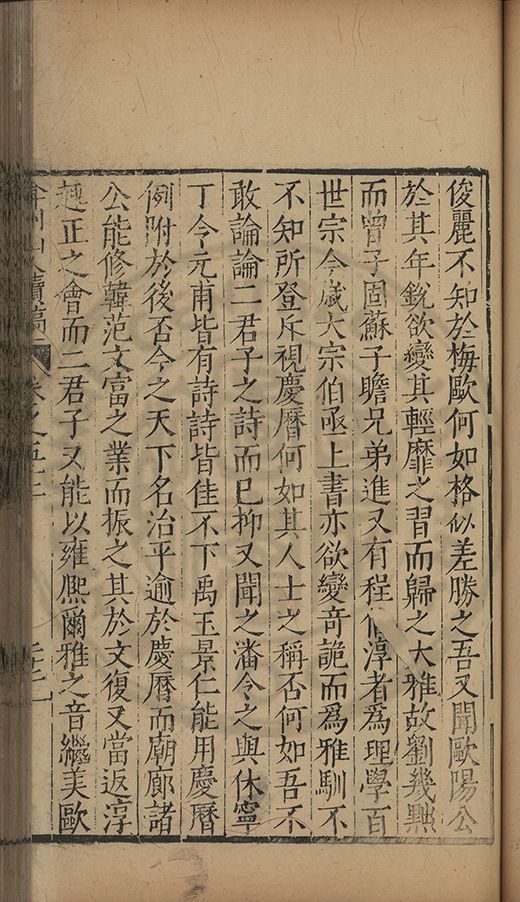 俊麗不知於梅歐何如格似差勝之吾又聞歐陽公
於其年銳欲變其輕靡之習而歸之大雅故劉幾黜
而曾子固蘇子瞻兄弟進又有程伯淳者爲理學百
世宗今歲大宗伯亟上書亦欲變奇詭而爲雅馴不
不知所登斥視慶曆何如其人士之稱否何如吾不
敢論論二君子之詩而已抑又聞之潘令之與休寧
丁令元甫皆有詩詩皆佳不下禹玉景仁能用慶曆
例附於後否今之天下名治平逾於慶曆而廟廊諸
公能修韓范文富之業而振之其於文復又當返淳
趨正之會而二君子又能以雍熙爾雅之音繼美歐
弇州山人續稿 卷之五十三